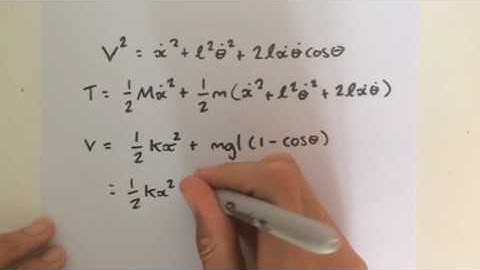 V² = ẋ² + l²θ̇² + 2lẋθ̇cosθ
T = 1/2 Mẋ² + 1/2 m(ẋ² + l²θ̇² + 2lẋθ̇)
V = 1/2 kx² + mgl(1 - cosθ)
= 1/2 kx²